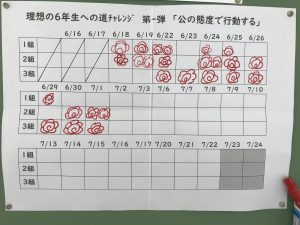 理想の6年生への道チャレンジ 第一弾 「公の態度で行動する」
6/16 6/17 6/18 6/19 6/22 6/23 6/24 6/25 6/26
1組
2組
3組
6/29 6/30 7/1 7/2 7/3 7/6 7/7 7/8 7/9 7/10
1組
2組
3組
7/13 7/14 7/15 7/16 7/17 7/20 7/21 7/22 7/23 7/24
1組
2組
3組